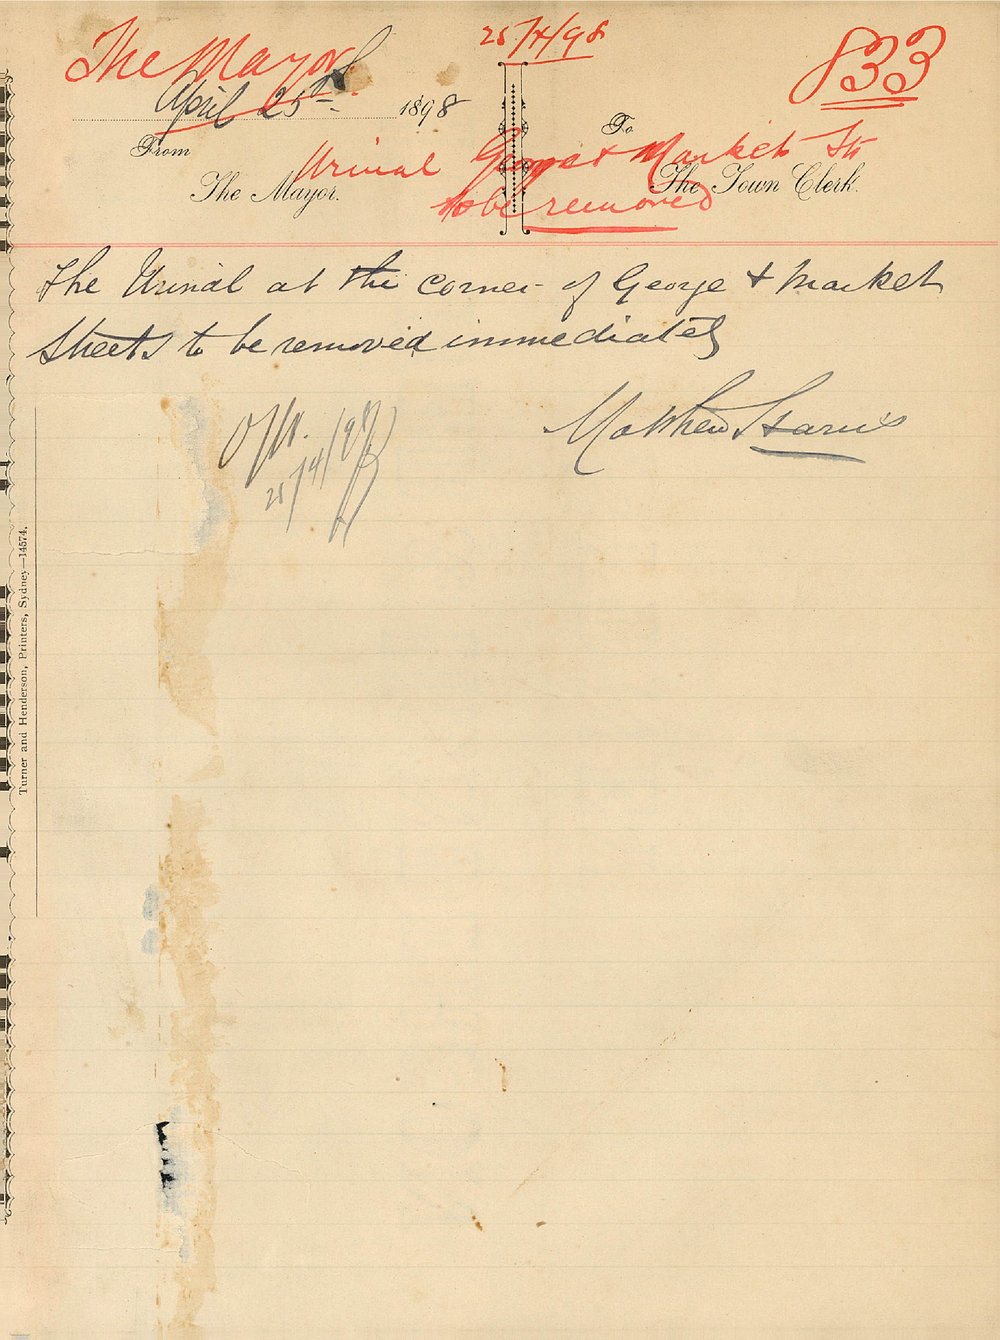 The Mayor
25/4/98
833
April 25th 1898
From
The Mayor.
To
The Town Clerk.
Urinal George & Market Sts
to be removed
The Urinal at the corner of George & Market
Streets to be removed immediately
Matthew Harris
25/4/98
Turner and Henderson, Printers, Sydney—14574.